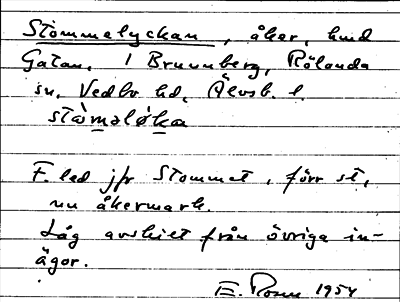 Stommelyckan, åker, hmd
Gatan. 1 Brunnberg, Rölanda
sn. Vedbo hd, Älvsb. l.
stòmǝløka
F. led jfr Stommet, förr st,
nu åkermark.
Låg avskilt från övriga in-
ägor.
E. Rosén 1954